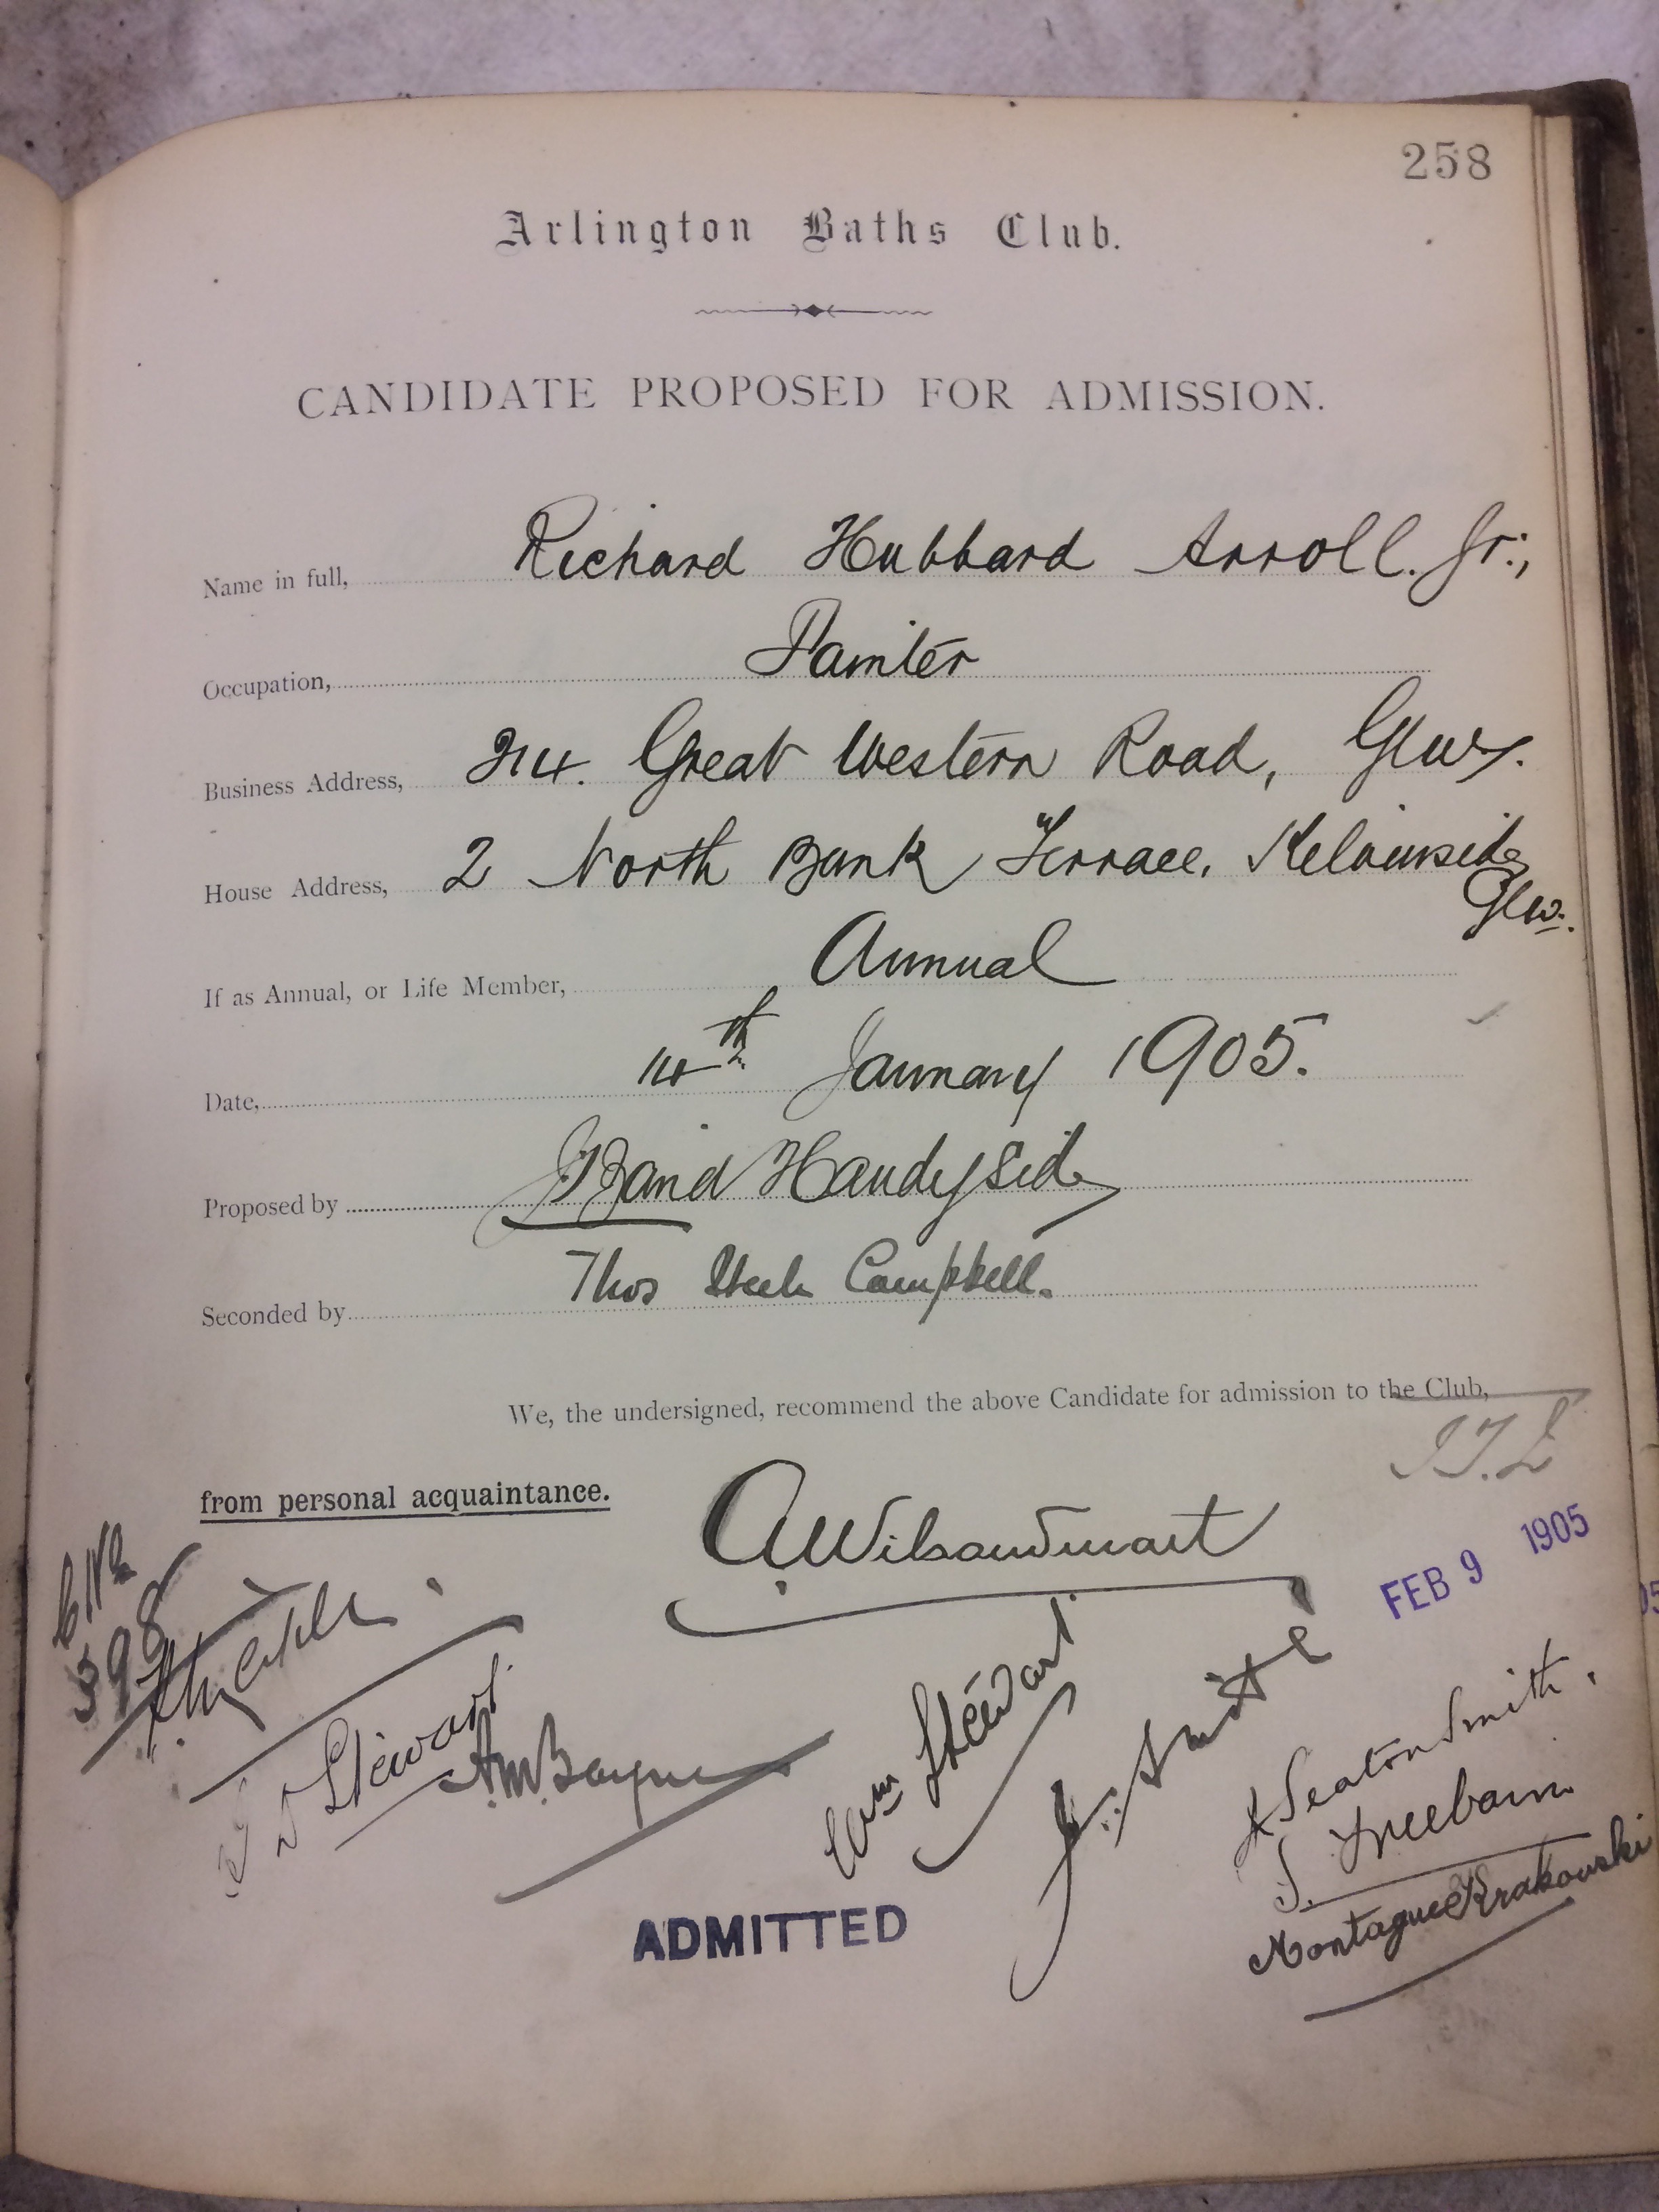 258
Arlington Baths Club.
CANDIDATE PROPOSED FOR ADMISSION.
Name in full, Richard Hubbard Arroll. Jr.,
Occupation, Painter
Business Address, 314. Great Western Road,
House Address, 2 North Bank Terrace, Kelvinside
Glw.
If as Annual, or Life Member, Annual
Date, 14th January 1905.
Proposed by Baird Handyside
Seconded by Thos Campbell.
We, the undersigned, recommend the above Candidate for admission to the Club,
from personal acquaintance.
FEB 9 1905
398
D Stewart
AM Bayne
Wm Stewart
J. Smith
Seaton Smith.
Freebairn
Montague Krakowski
ADMITTED